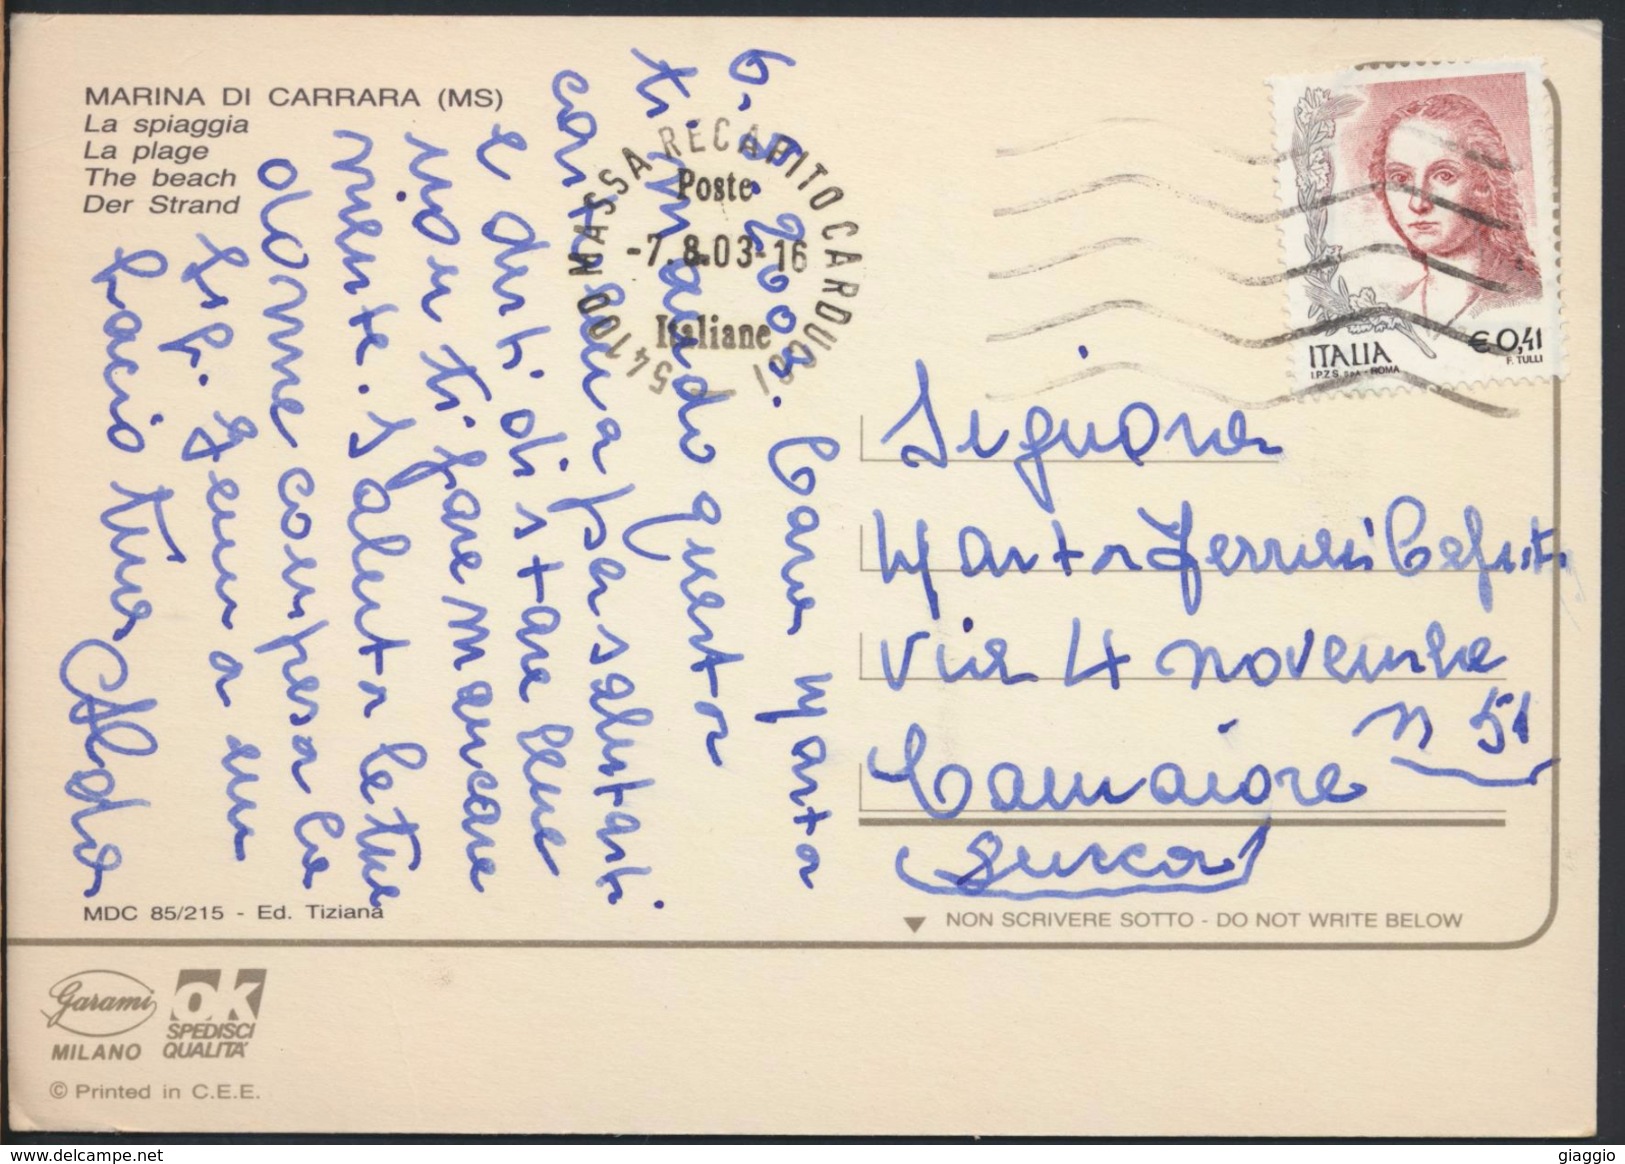 MARINA DI CARRARA (MS)
La spiaggia
La plage
The beach
Der Strand
6. 8. 2003. Cara Marta
ti mando questa
cartolina per salutarti
e dirti di stare bene
non ti fare mancare
niente. Saluta le tue
donne compresa la
un
bacio tua Alda
54100 MASSA RECAPITO CARDUCCI
Poste
-7.8.03-16
Italiane
ITALIA
€ 0,41
I.P.Z.S. S.p.A. - ROMA
F. TULLI
Signora
Marta
via 4 novembre
n 51
Camaiore
Lucca
MDC 85/215 - Ed. Tiziana
NON SCRIVERE SOTTO - DO NOT WRITE BELOW
Garami
MILANO
OK
SPEDISCI
QUALITA'
© Printed in C.E.E.
delcampe.net
giaggio